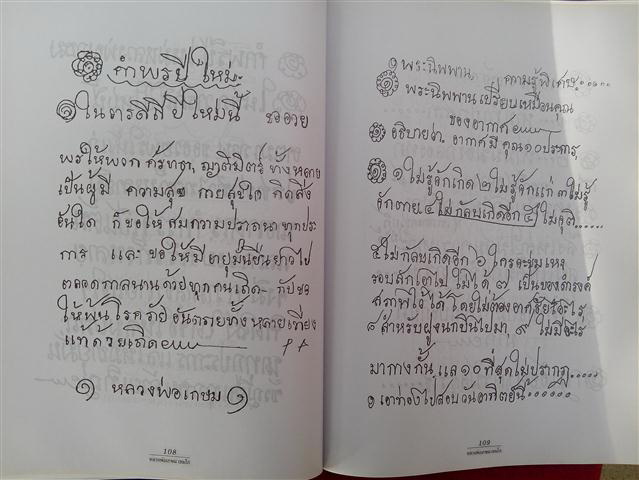 คำพรปีใหม่
๑ ในวารสีสีปีใหม่นี้ ขออวย
พรให้พวก ศรัทธา, ญาติมิตร์ ทั้งหลาย
เป็นผู้มี ความสุข กายสุขใจ คิดสิ่ง
อันใด ก็ขอให้ สมความปรารถนา ทุกประ
การ และ ขอให้มีอายุมั่นขืนยาวไป
ตลอดกาลนานด้วยทุกคนเถิด กับขอ
ให้พ้นโรคภัย อันตรายทั้งหลายเที่ยง
แท้ด้วยเถิด
๑ หลวงพ่อเกษม ๑
108
หลวงพ่อเกษม เขมโก
๑ พระนิพพาน, ความรู้พิเศษ......
๑ พระนิพพานเปรียบเหมือนคุณ
ของอากาศ
๑ อธิบายว่า. อากาศมีคุณ๑๐ประการ,
๑ ๑ไม่รู้จักเกิด ๒ไม่รู้จักแก่ ๓ไม่รู้
จักตาย ๔ไม่กลับเกิดอีก ๕ไม่จุติ......
๕ไม่กลับเกิดอีก ๖ ใครจะขุมเหง
รอบลักเอาไป ไม่ได้ ๗ เป็นของดำรงค์
สภาพไว้ได้ โดยไม่ต้องอาศัยอะไร
๘ สำหรับฝูงนกบินไปมา, ๙ ไม่มีอะไร
มากางกั้น แล ๑๐ที่สุดไม่ปรากฏ.....
๑ เอาท่องไปสอบวันอาทิตย์นี้......
109
หลวงพ่อเกษม เขมโก